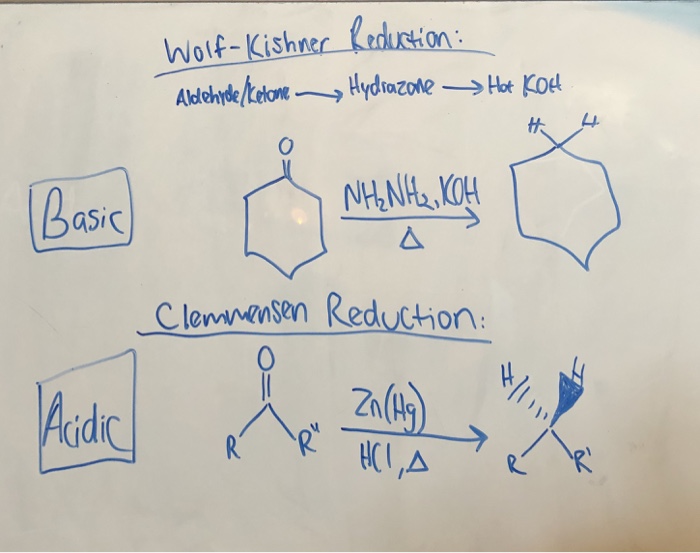 Wolf-Kishner Reduction:
Aldehyde/Ketone → Hydrazone → Hot KOH
H H
O
Basic
NH₂NH₂, KOH
Δ
Clemmensen Reduction:
O
H H
Acidic
Zn(Hg)
R R"
HCl, Δ
R R'